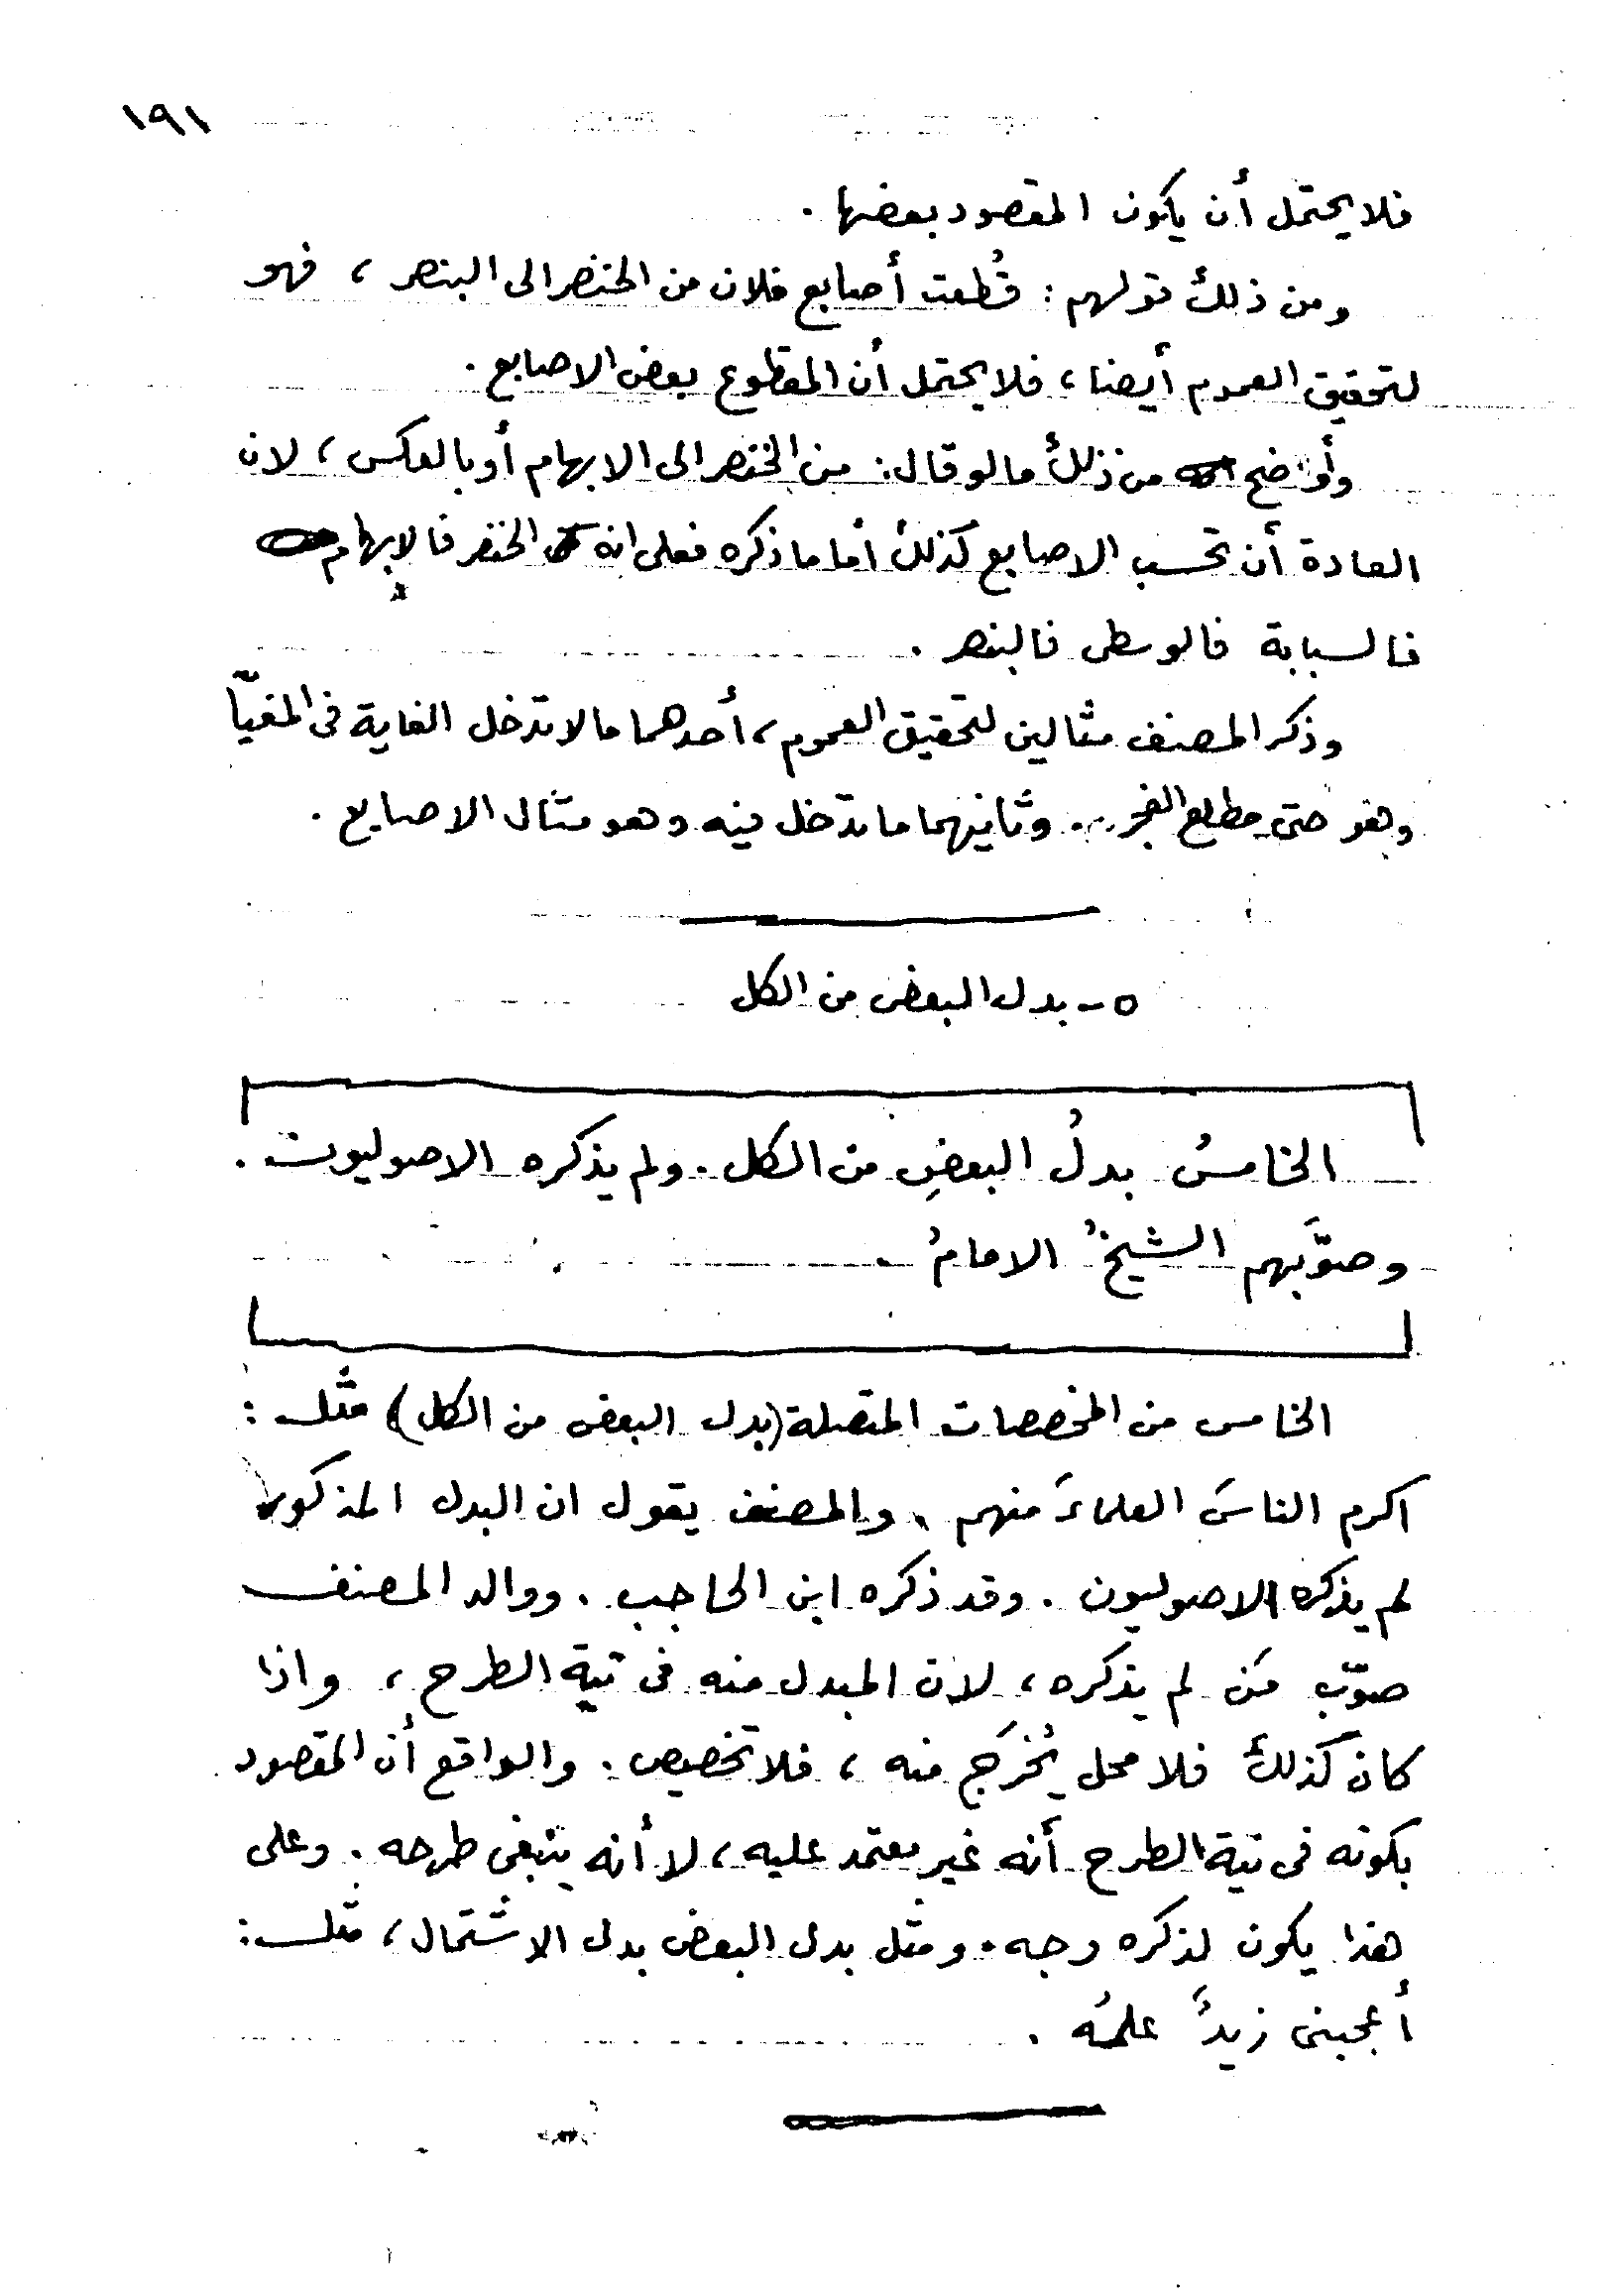 ١٩١
فلا يحتمل أن يكون المقصود بعضها .
ومن ذلك قولهم : قُطعت أصابع فلان من الخنصر الى البنصر ، فهو
لتحقيق العموم أيضا ، فلا يحتمل أن المقطوع بعض الاصابع .
وأوضح من ذلك ما لو قال : من الخنصر الى الابهام أو بالعكس ، لان
العادة أن تحسب الاصابع كذلك أما ما ذكره فعلى انه الخنصر فالابهام
فالسبابة فالوسطى فالبنصر .
وذكر المصنف مثالين لتحقيق العموم ، أحدهما ما لا تدخل الغاية في المغيّا
وهو حتى مطلع الفجر .. وثانيهما ما تدخل فيه وهو مثال الاصابع .
٥ - بدل البعض من الكل
الخامسُ بدلُ البعضِ من الكل . ولم يذكره الاصوليون .
وصوَّبهم الشيخُ الامامُ .
الخامس من المخصصات المتصلة (بدل البعض من الكل) مثل :
اكرم الناسَ العلماءَ منهم ، والمصنف يقول ان البدل المذكور
لم يذكره الاصوليون . وقد ذكره ابن الحاجب . ووالد المصنف
صوّب مَن لم يذكره ، لان المبدل منه في نية الطرح ، واذا
كان كذلك فلا محل يُخرَج منه ، فلا تخصيص . والواقع أن المقصود
بكونه في نية الطرح أنه غير معتمد عليه ، لا أنه ينبغي طرحه . وعلى
هذا يكون لذكره وجه . ومثل بدل البعض بدل الاشتمال ، مثل :
أعجبني زيدٌ علمُه .